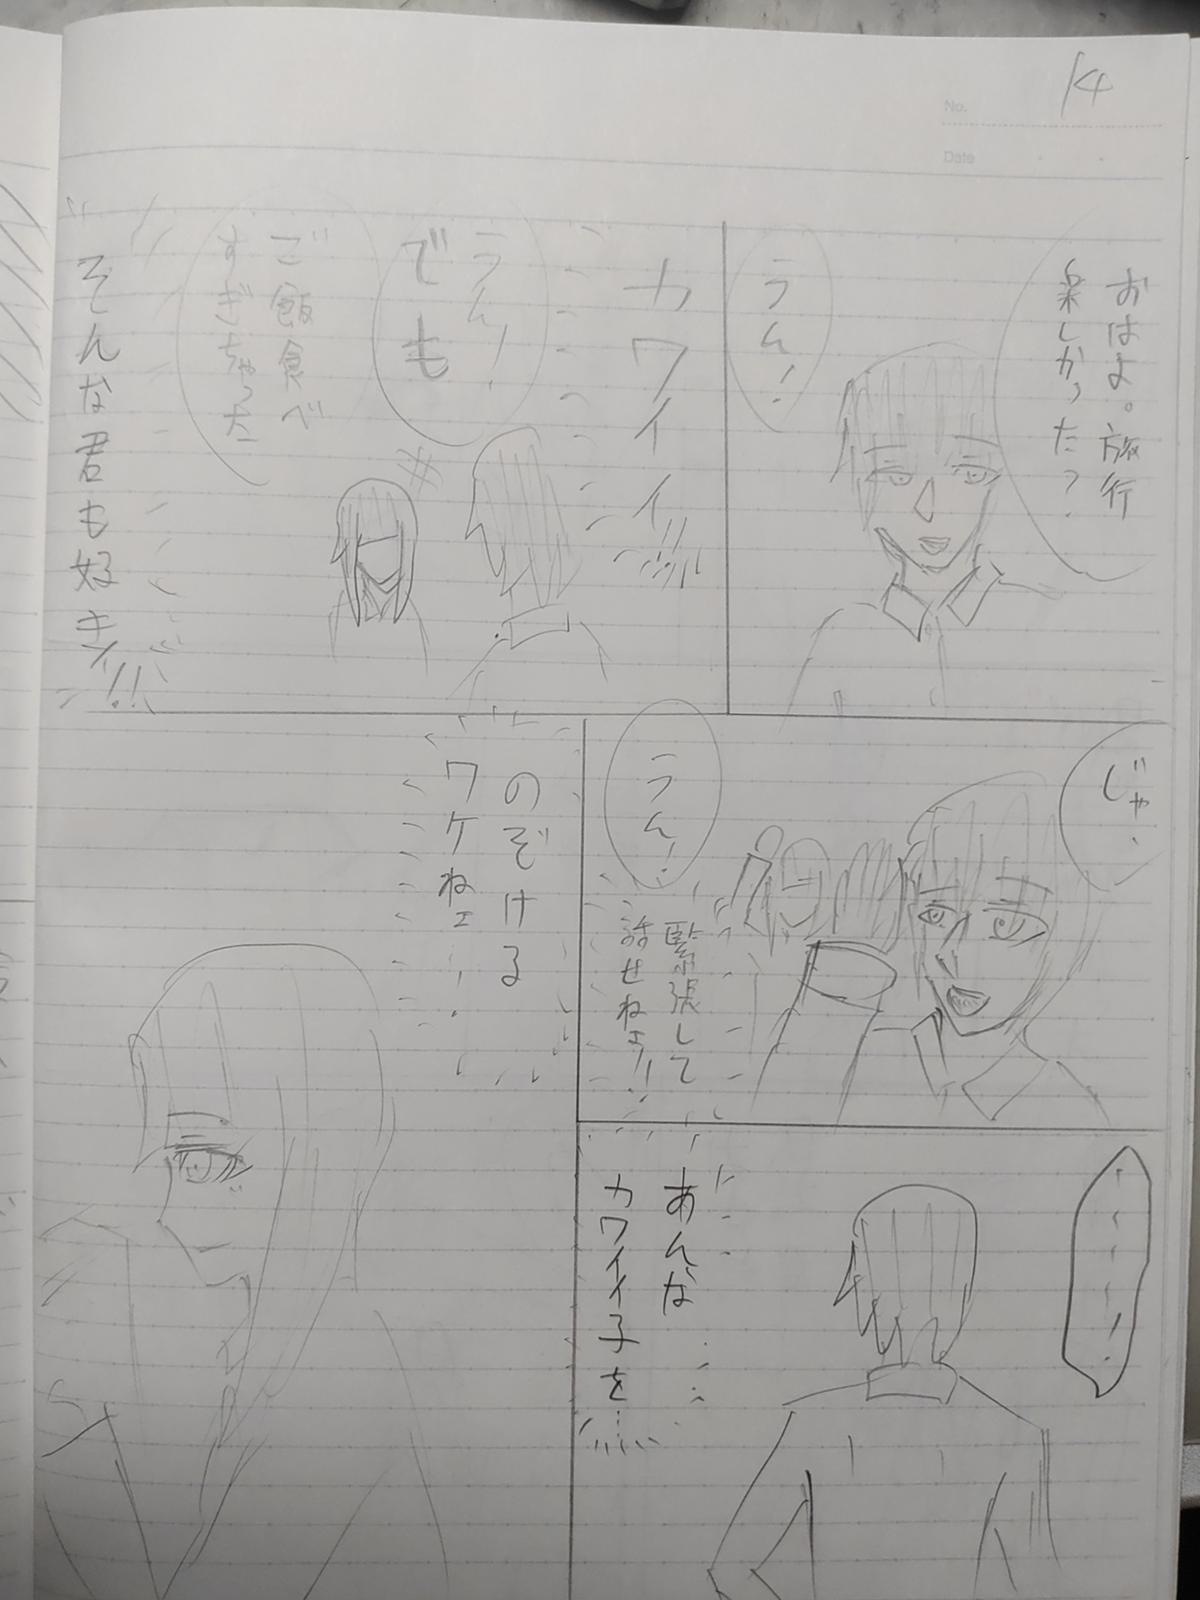 14
No.
Date
おはよ。旅行
楽しかった?
うん!
カワイイ!!
うん!
でも
ご飯食べ
すぎちゃった
そんな君も好き!!
じゃ、
うん!
緊張して
話せねェ!!
あんな
カワイイ子を…
のぞける
ワケねェ…